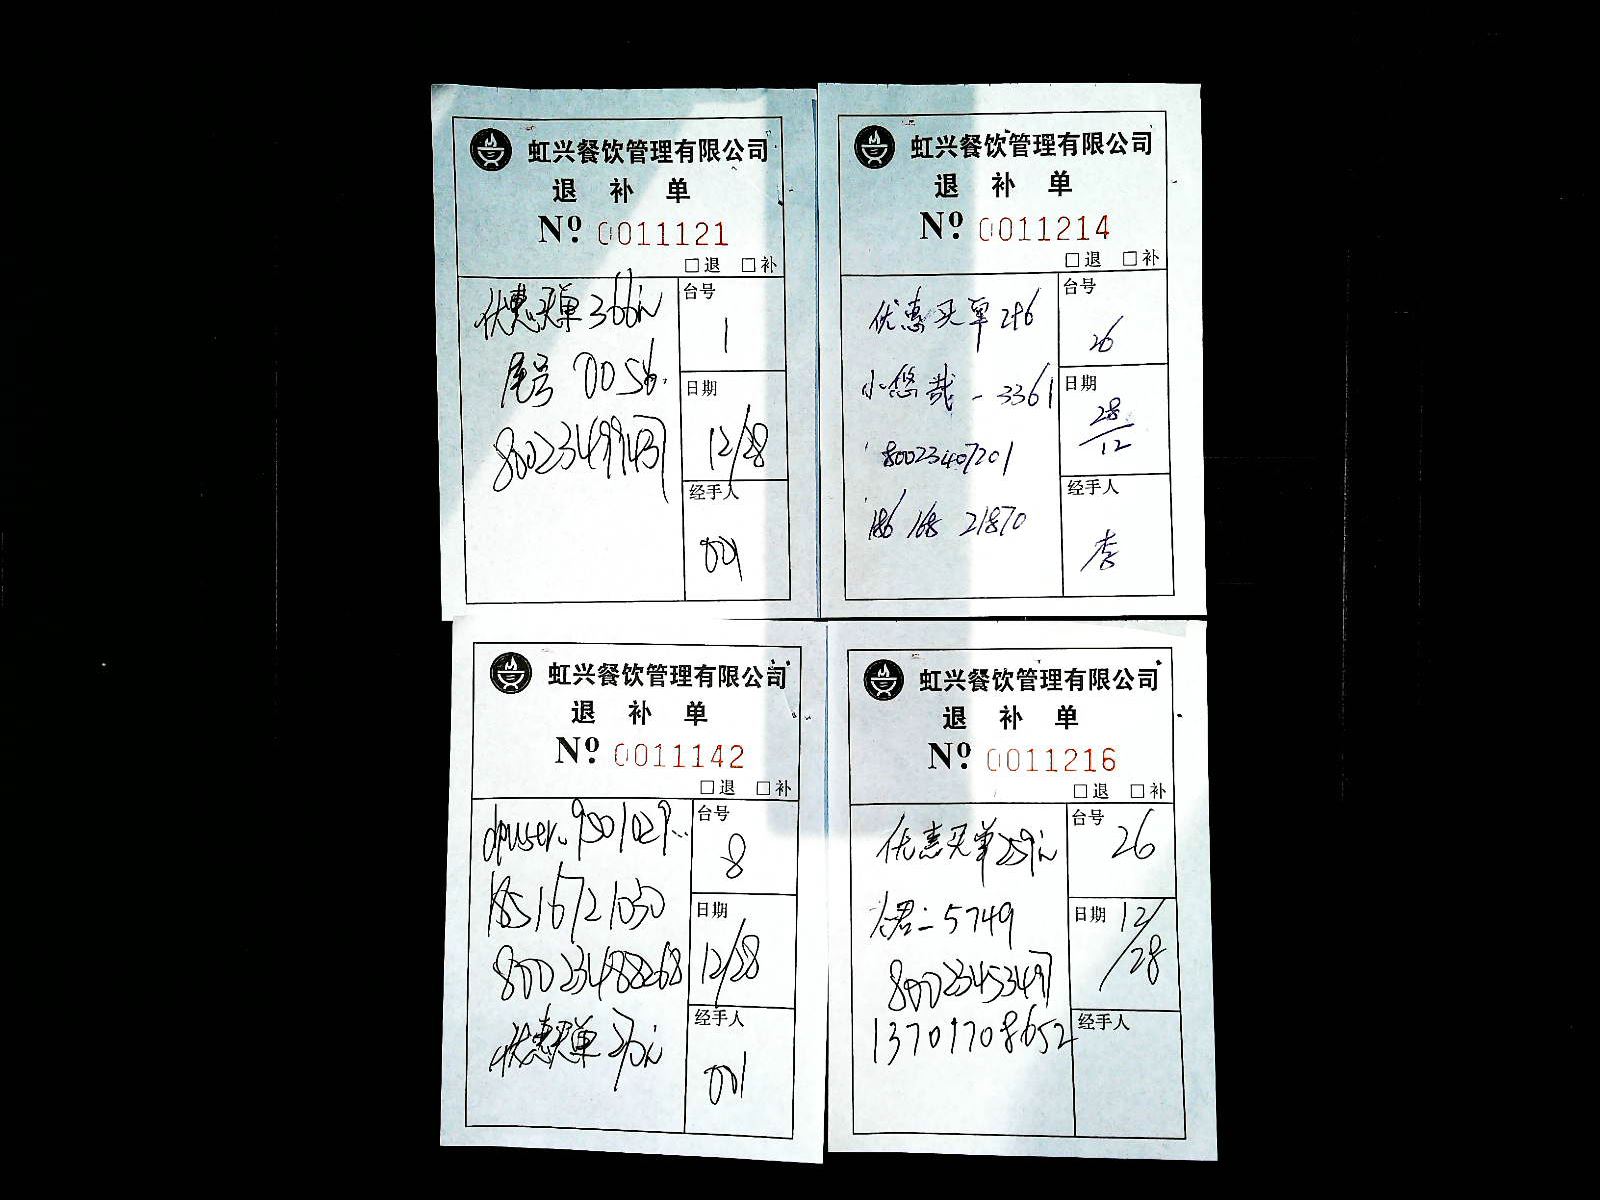 虹兴餐饮管理有限公司
退 补 单
№ 0011121
□退 □补
优惠买单366元
尾号 0056
80023499437
台号
1
日期
12/28
经手人
001
虹兴餐饮管理有限公司
退 补 单
№ 0011214
□退 □补
优惠买单296
小悠哉 - 3361
80023407201
186 168 21870
台号
26
日期
28/12
经手人
李
虹兴餐饮管理有限公司
退 补 单
№ 0011142
□退 □补
dpuser.9501029...
18516721030
80023488268
优惠买单
台号
8
日期
12/28
经手人
001
虹兴餐饮管理有限公司
退 补 单
№ 0011216
□退 □补
优惠买单259元
5749
80023453497
13701708652
台号
26
日期
12/28
经手人